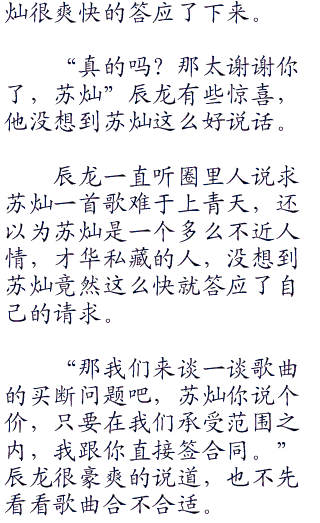 灿很爽快的答应了下来。
“真的吗？那太谢谢你
了，苏灿”辰龙有些惊喜，
他没想到苏灿这么好说话。
辰龙一直听圈里人说求
苏灿一首歌难于上青天，还
以为苏灿是一个多么不近人
情，才华私藏的人，没想到
苏灿竟然这么快就答应了自
己的请求。
“那我们来谈一谈歌曲
的买断问题吧，苏灿你说个
价，只要在我们承受范围之
内，我跟你直接签合同。”
辰龙很豪爽的说道，也不先
看看歌曲合不合适。